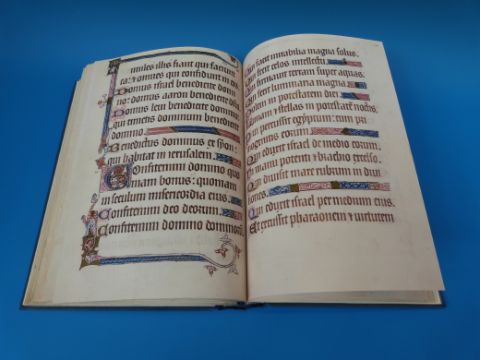 imiles illis fiant qui faciunt
ea: et omnes qui confidunt in eis
Domus israel benedicite domi
no: domus aaron benedicite domino
Domus leui benedicite domino
qui timetis dominum benedicite
domino.
Benedictus dominus ex syon:
qui habitat in ierusalem.
Confitemini domino
quoniam bonus: quoniam
in seculum misericordia eius.
Confitemini deo deorum:
Confitemini domino dominorum
Qui facit mirabilia magna solus.
Qui fecit celos intellectu
Qui firmauit terram super aquas.
Qui fecit luminaria magna.
Solem in potestatem diei
Lunam et stellas in potestatem noctis.
Qui percussit egyptum: cum pri
mogenitis eorum
Qui eduxit israel de medio eorum.
In manu potenti et brachio excelso.
Qui diuisit mare rubrum in diui
siones.
Et eduxit israel per medium eius.
Et excussit pharaonem et uirtutem